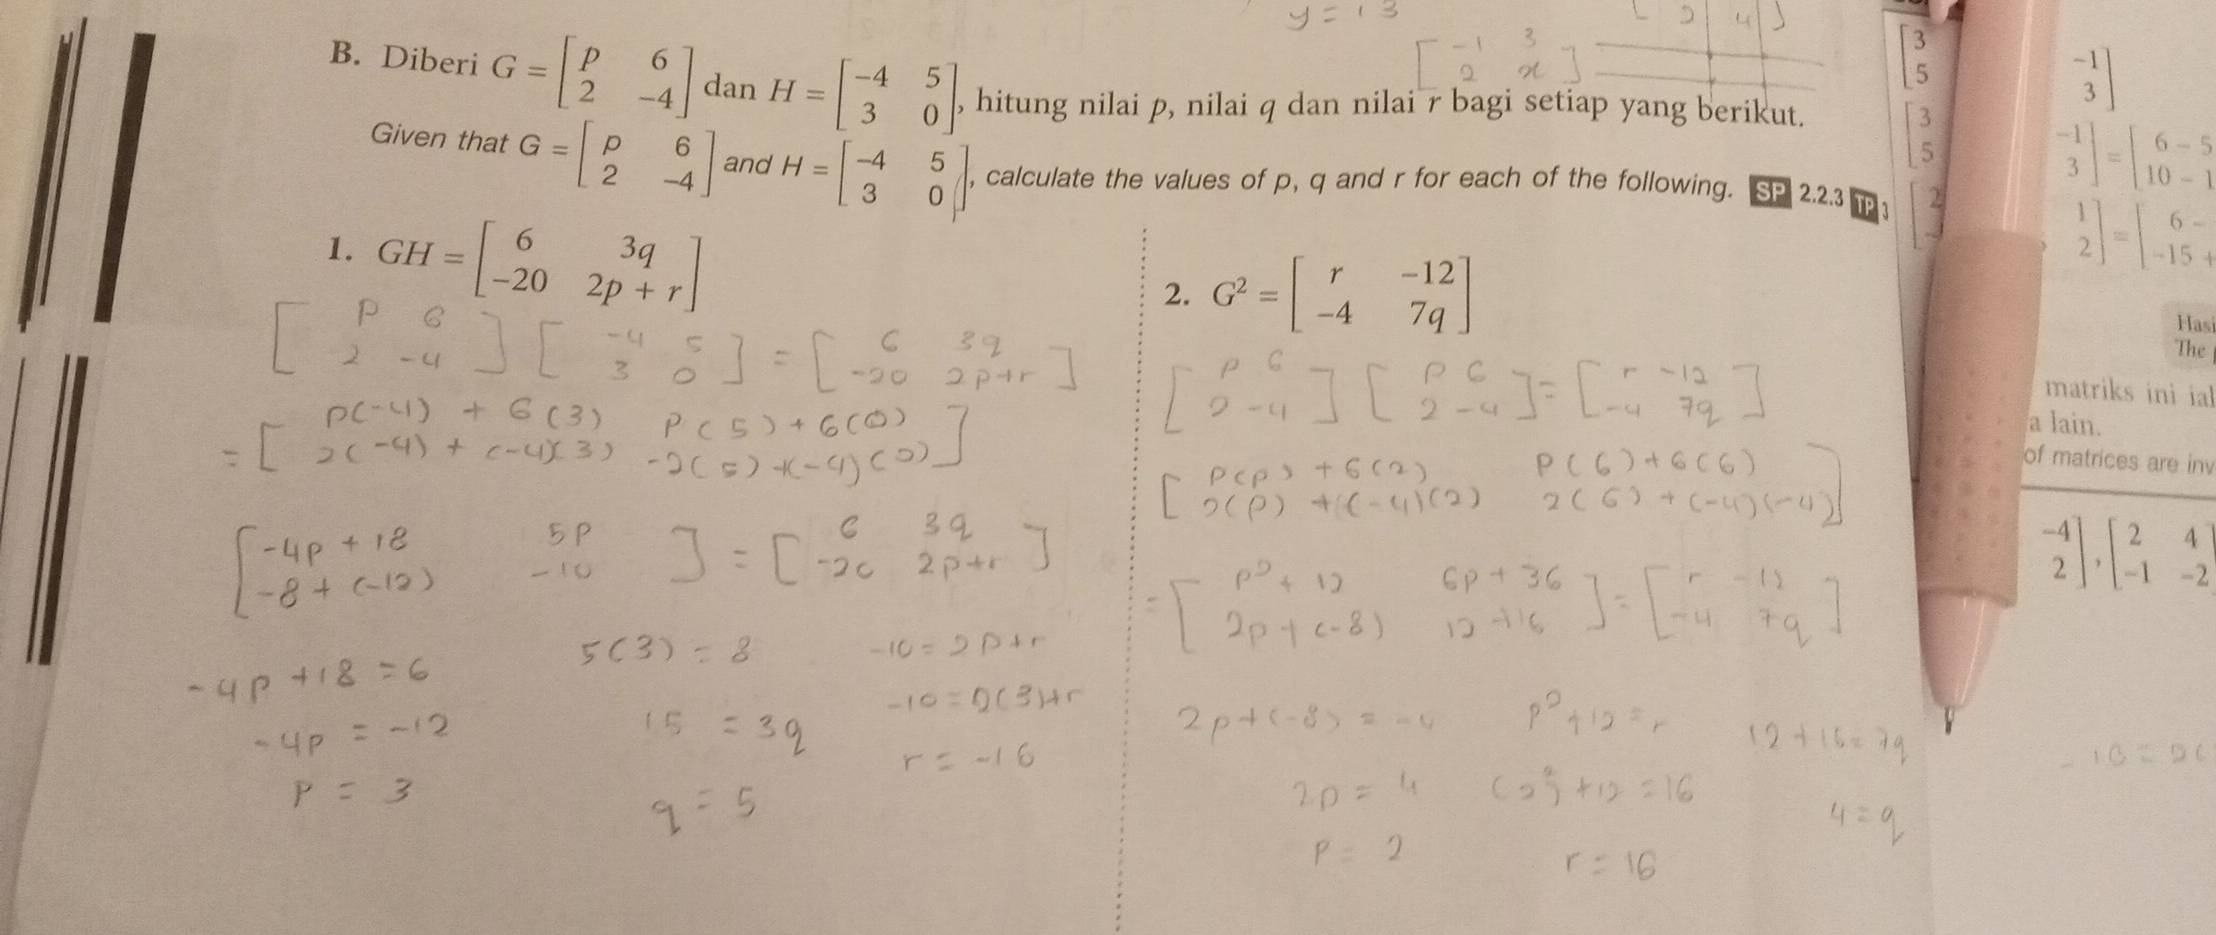 y = 13
[-1 3
2 x]
B. Diberi G = [p 6
2 -4] dan H = [-4 5
3 0], hitung nilai p, nilai q dan nilai r bagi setiap yang berikut.
Given that G = [p 6
2 -4] and H = [-4 5
3 0], calculate the values of p, q and r for each of the following. SP 2.2.3 TP 3
1. GH = [6 3q
-20 2p + r]
[p 6
2 -4] [-4 5
3 0] = [6 3q
-20 2p+r]
= [p(-4) + 6(3) p(5)+6(0)
2(-4) + (-4)(3) -2(5)+(-4)(0)]
[-4p + 18 5p
-8 + (-12) -10] = [6 3q
-20 2p+r]
-4p + 18 = 6
-4p = -12
p = 3
5(3) = 8
15 = 3q
q = 5
-10 = 2p+r
-10 = 2(3)+r
r = -16
2. G² = [r -12
-4 7q]
[p 6
2 -4] [p 6
2 -4] = [r -12
-4 7q]
[p(p) + 6(2) p(6)+6(6)
2(p) + (-4)(2) 2(6) + (-4)(-4)]
= [p²+ 12 6p + 36
2p + (-8) 12 + 16] = [r -12
-4 7q]
2p + (-8) = -4
2p = 4
p = 2
p²+12 = r
(2)²+12 = 16
r = 16
12 + 16 = 7q
4 = q
[3 -1
5 3]
[3 -1
5 3] = [6 - 5
10 - 1
1
2] = [6 -
-15 +
Hasi
The
matriks ini ial
a lain.
of matrices are inv
-4
2], [2 4
-1 -2]